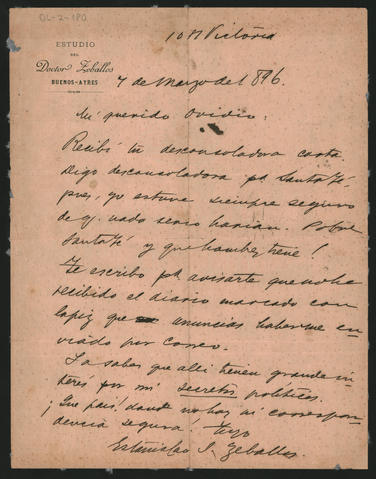 OL-2-180
ESTUDIO
DEL
Doctor Zeballos
BUENOS-AYRES
Victoria
7 de Marzo del 896.
Mi querido Ovidio:
Recibí tu desconsoladora carta.
Digo desconsoladora pa. Santa Fé,
pues, yo estuve siempre seguro
de q. nada serio harian. Pobre
Santa Fé y que hombres tiene!
Te escribo pa. avisarte que no he
recibido el diario marcado con
lapiz que anuncias haberme en-
viado por correo.
Ya sabes que alli tienen grande in-
terés por mis secretos políticos.
¡Que pais, donde no hay ni correspon-
dencia segura! Tuyo
Estanislao S. Zeballos.